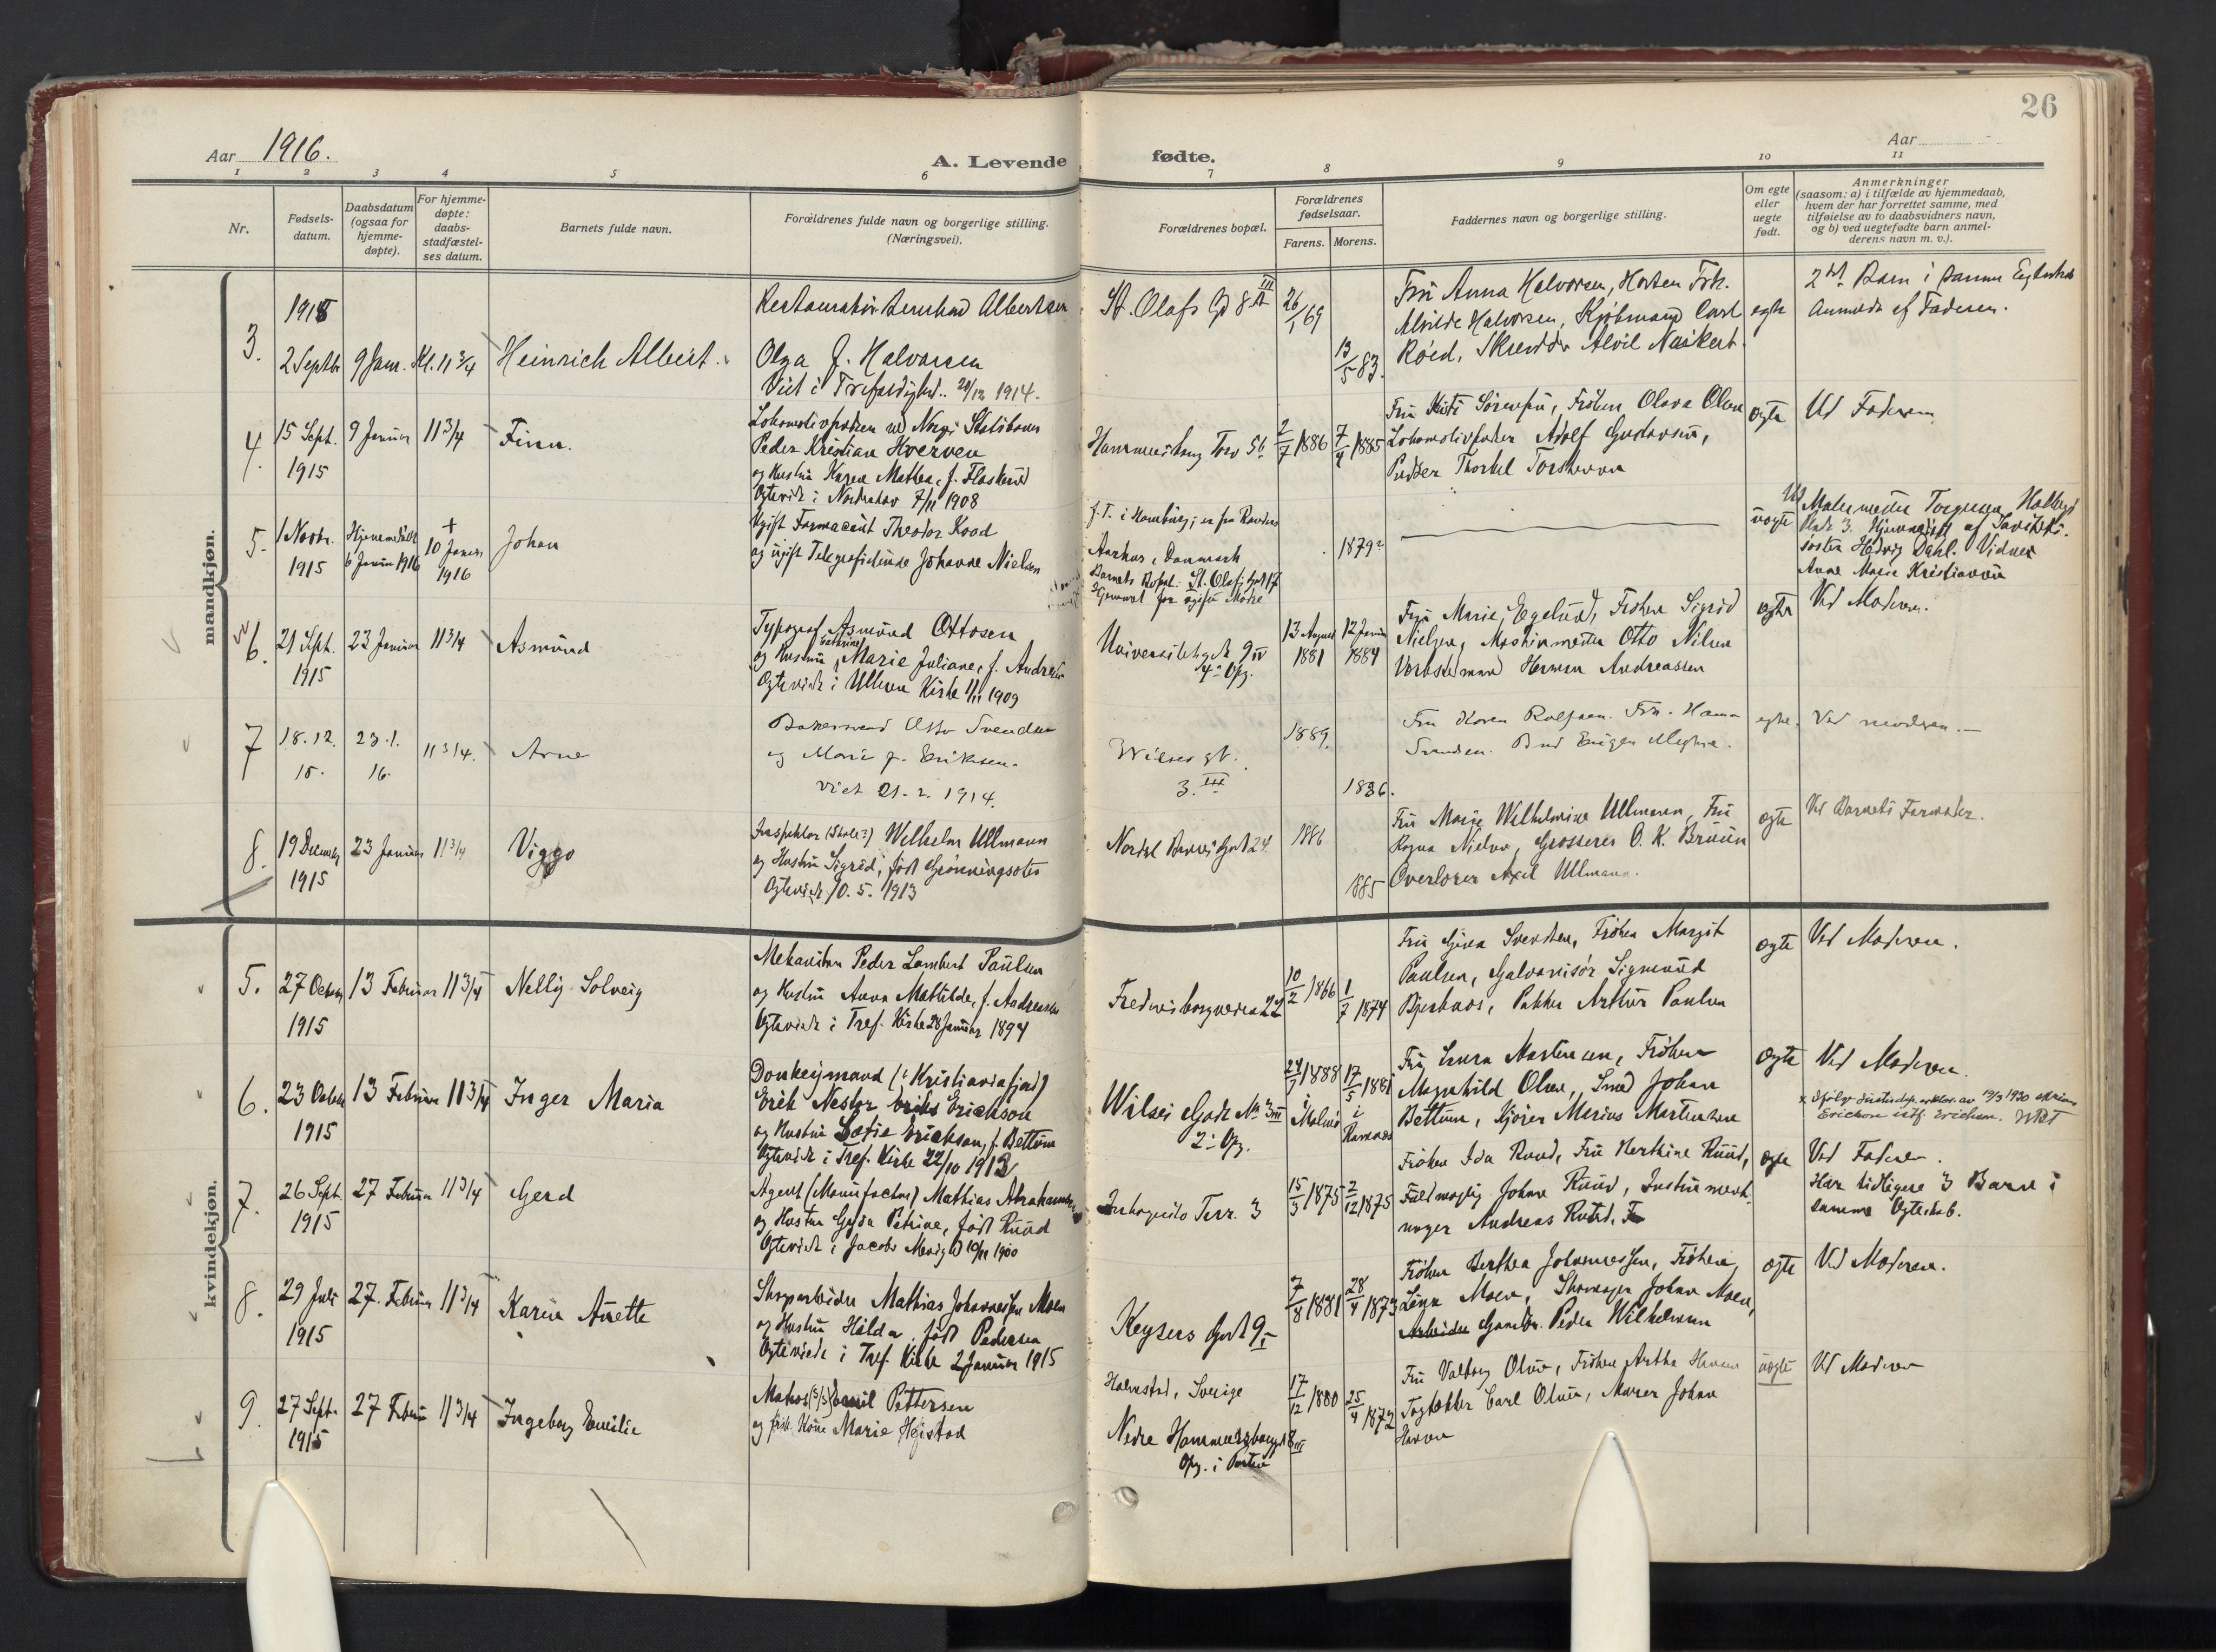 26
Aar 1916.
A. Levende fødte.
Aar
1 2 3 4 5 6 7 8 9 10 11
Nr.
Fødsels-
datum.
Daabsdatum
(ogsaa for
hjemme-
døpte).
For hjemme-
døpte:
daabs-
stadfæstel-
ses datum.
Barnets fulde navn.
Forældrenes fulde navn og borgerlige stilling.
(Næringsvei).
Forældrenes bopæl.
Forældrenes
fødselsaar.
Farens. Morens.
Faddernes navn og borgerlige stilling.
Om egte
eller
uegte
født.
Anmerkninger
(saasom: a) i tilfælde av hjemmedaab,
hvem der har forrettet samme, med
tilføielse av to daabsvidners navn,
og b) ved uegtefødte barn anmel-
derens navn m. v.).
mandkjøn.
3.
2 Septbr
9 Jan.
Kl. 11 3/4
Heinrich Albert.
Restauratør Bernhard Albertsen
Olga f. Halvorsen
Viet i Trefoldighed. 1914.
St. Olafs Gd 8 III
26/1 69
13/5 83.
Fru Anna Halvorsen, Horten Frk.
Alvilde Halvorsen, Kjøbmand Carl
Røed, Skredder
egte
2det Barn i samme Egteskab
Anmeldt af Faderen.
4.
15 Sept.
1915
9 Januar
11 3/4
Finn.
Lokomotivpudser ved Norges Statsbaner
Peder Kristian Hverven
og Hustru Karen Mathea, f. Flaskerud
Ogteviet i Norderhov 7/11 1908
Hammersborg Torv 5b
2/7 1886
7/4 1885
Fru Sørensen, Frøken Olava Olsen
Lokomotivfyrbøter Adolf Gustavsen,
Pudser Thorkel Torstensen
ogte
Ved Faderen
5.
1 Novbr.
1915
Hjemmedøbt
6 Januar 1916
+
10 Januar
1916
Johan
Ugift Farmaceut Theodor Koad
og ugift Telegrafistinde Johanne Nielsen
f. T. i Hamburg; er fra Randers
Aarhus, Danmark
Barnets Bopæl: St. Olafs Gade 17
Hjemmet for ugifte Mødre
1879?
uogte
Ved Malermester Torgersen
Plads 3. Hjemmedøbt af
søster Hedvig Dahl. Vidner
Anne Marie Kristiansen
6.
21 Sept.
1915
23 Januar
11 3/4
Asmund
Typograf Asmund Ottosen
og Hustru Marie Juliane, f. Andresen
Ogteviet i Ullern Kirke 1909
Universitetsgt 9 IV
4de Opg.
13 August
1881
12 Januar
1884
Fru Marie Egelund, Frøken Sigrid
Nielsen, Maskinmester Otto Nilsen
Verkstedmand Herman Andreassen
ogte
Ved Moderen.
7
18.12.
15.
23.1.
16.
11 3/4.
Arne
Bakersvend Otto Svendsen
og Marie f. Eriksen.
viet 21.2.1914.
Wilses gt.
3. III
1889.
1886.
Fru Karen Rolfsen. Frk. Hanna
Svendsen. Bud Eugen
egte.
Ved moderen.
8.
19 December
1915
23 Januar
11 3/4
Viggo
Inspektør (Skole?) Wilhelm Ullmann
og Hustru Sigrid, født Grønningsæter
Ogteviet 10.5.1913
Nordal Bruns Gade 24.
1886
1885
Fru Marie Wilhelmine Ullmann, Fru
Ragna Nielsen, Grosserer O. K. Bruun
Overlærer Axel Ullmann.
ogte
Ved Barnets Farmoder.
kvindekjøn.
5.
27 October
1915
13 Februar
11 3/4
Nelly Solveig
Mekaniker Peder Lambert Paulsen
og Hustru Anna Mathilde, f. Andreassen
Ogteviet i Tref. Kirke 28 Januar 1894
Fredensborgveien 22
10/2 1866
1/7 1874
Fru Gina Svendsen, Frøken Margit
Paulsen, Galvanisør Sigmund
Bjerknæs, Pakker Arthur Paulsen
ogte
Ved Moderen.
6.
23 October
1915
13 Februar
11 3/4
Inger Maria
Donkeymand (i Kristianiafjord)
Erik Nestor Erickson
og Hustru Sofie Erickson, f. Bettum
Ogteviet i Tref. Kirke 22/10 1912
Wilses Gade No 3 III
2: Opg.
24/7 1888
i
Malmø
17/5 1881
i
Ramnæs
Fru Laura Martinsen, Frøken
Magnhild Olsen, Smed Johan
Bettum, Kjører Marius Martinsen
ogte
Ved Moderen.
Erickson istf. Erichsen.
7.
26 Sept.
1915
27 Februar
11 3/4
Gerd
Agent (Manufactur) Mathias Abrahamsen
og Hustru Gyda Petrine, født Ruud
Ogteviet i Jacobs Menighed 10/11 1900
Terr. 3
15/3 1875
2/12 1875
Frøken Ida Ruud, Fru Herthine Ruud,
Fuldmægtig Johan Ruud, Instrument-
mager Andreas Ruud.
ogte
Ved Faderen.
Har tidligere 3 Barn i
samme Ogteskab.
8.
29 Juli
1915
27. Februar
11 3/4
Karin Anette
Skoarbeider Mathias Johannessen Moen
og Hustru Hilda, født Pedersen
Ogteviede i Tref. Kirke 2 Januar 1915
Keysers Gade 9 I
7/8 1881
28/4 1873
Frøken Berthea Johannessen, Frøken
Lina Moen, Skomager Johan Moen,
Arbeider Peder Wilhelmsen
ogte
Ved Moderen.
9.
27 Sept.
1915
27 Februar
11 3/4
Ingeborg Emilie
Matros (S/S) Emil Pettersen
og frask. Kone Marie Hejstad
Halmstad, Sverige
Nedre Hammersborggt 8 III
Opg. i Porten
17/12 1880
25/4 1872
Fru Valborg Olsen, Frøken Artha Hansen
Togtakker Carl Olsen, Murer Johan
Hansen
uogte
Ved Moderen